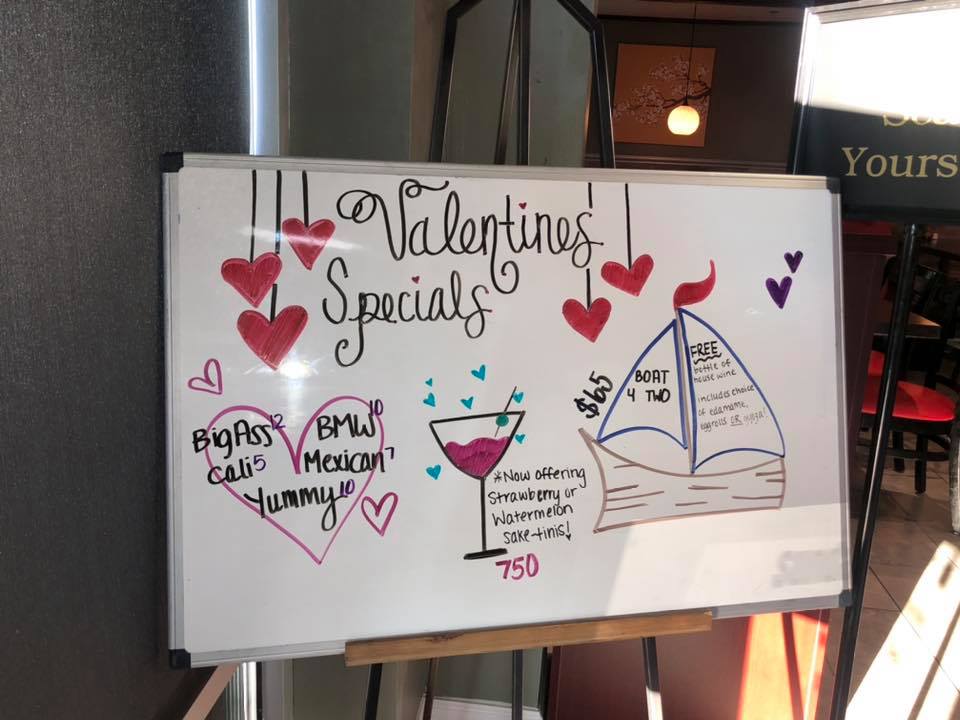 Valentines'
Specials
BigAss 12
Cali 5
BMW 10
Mexican 7
Yummy 10
*Now offering
Strawberry or
Watermelon
sake-tinis!
750
$65
BOAT
4 TWO
FREE
bottle of
house wine
includes choice
of edamame,
eggrolls OR gyoza!
Yours